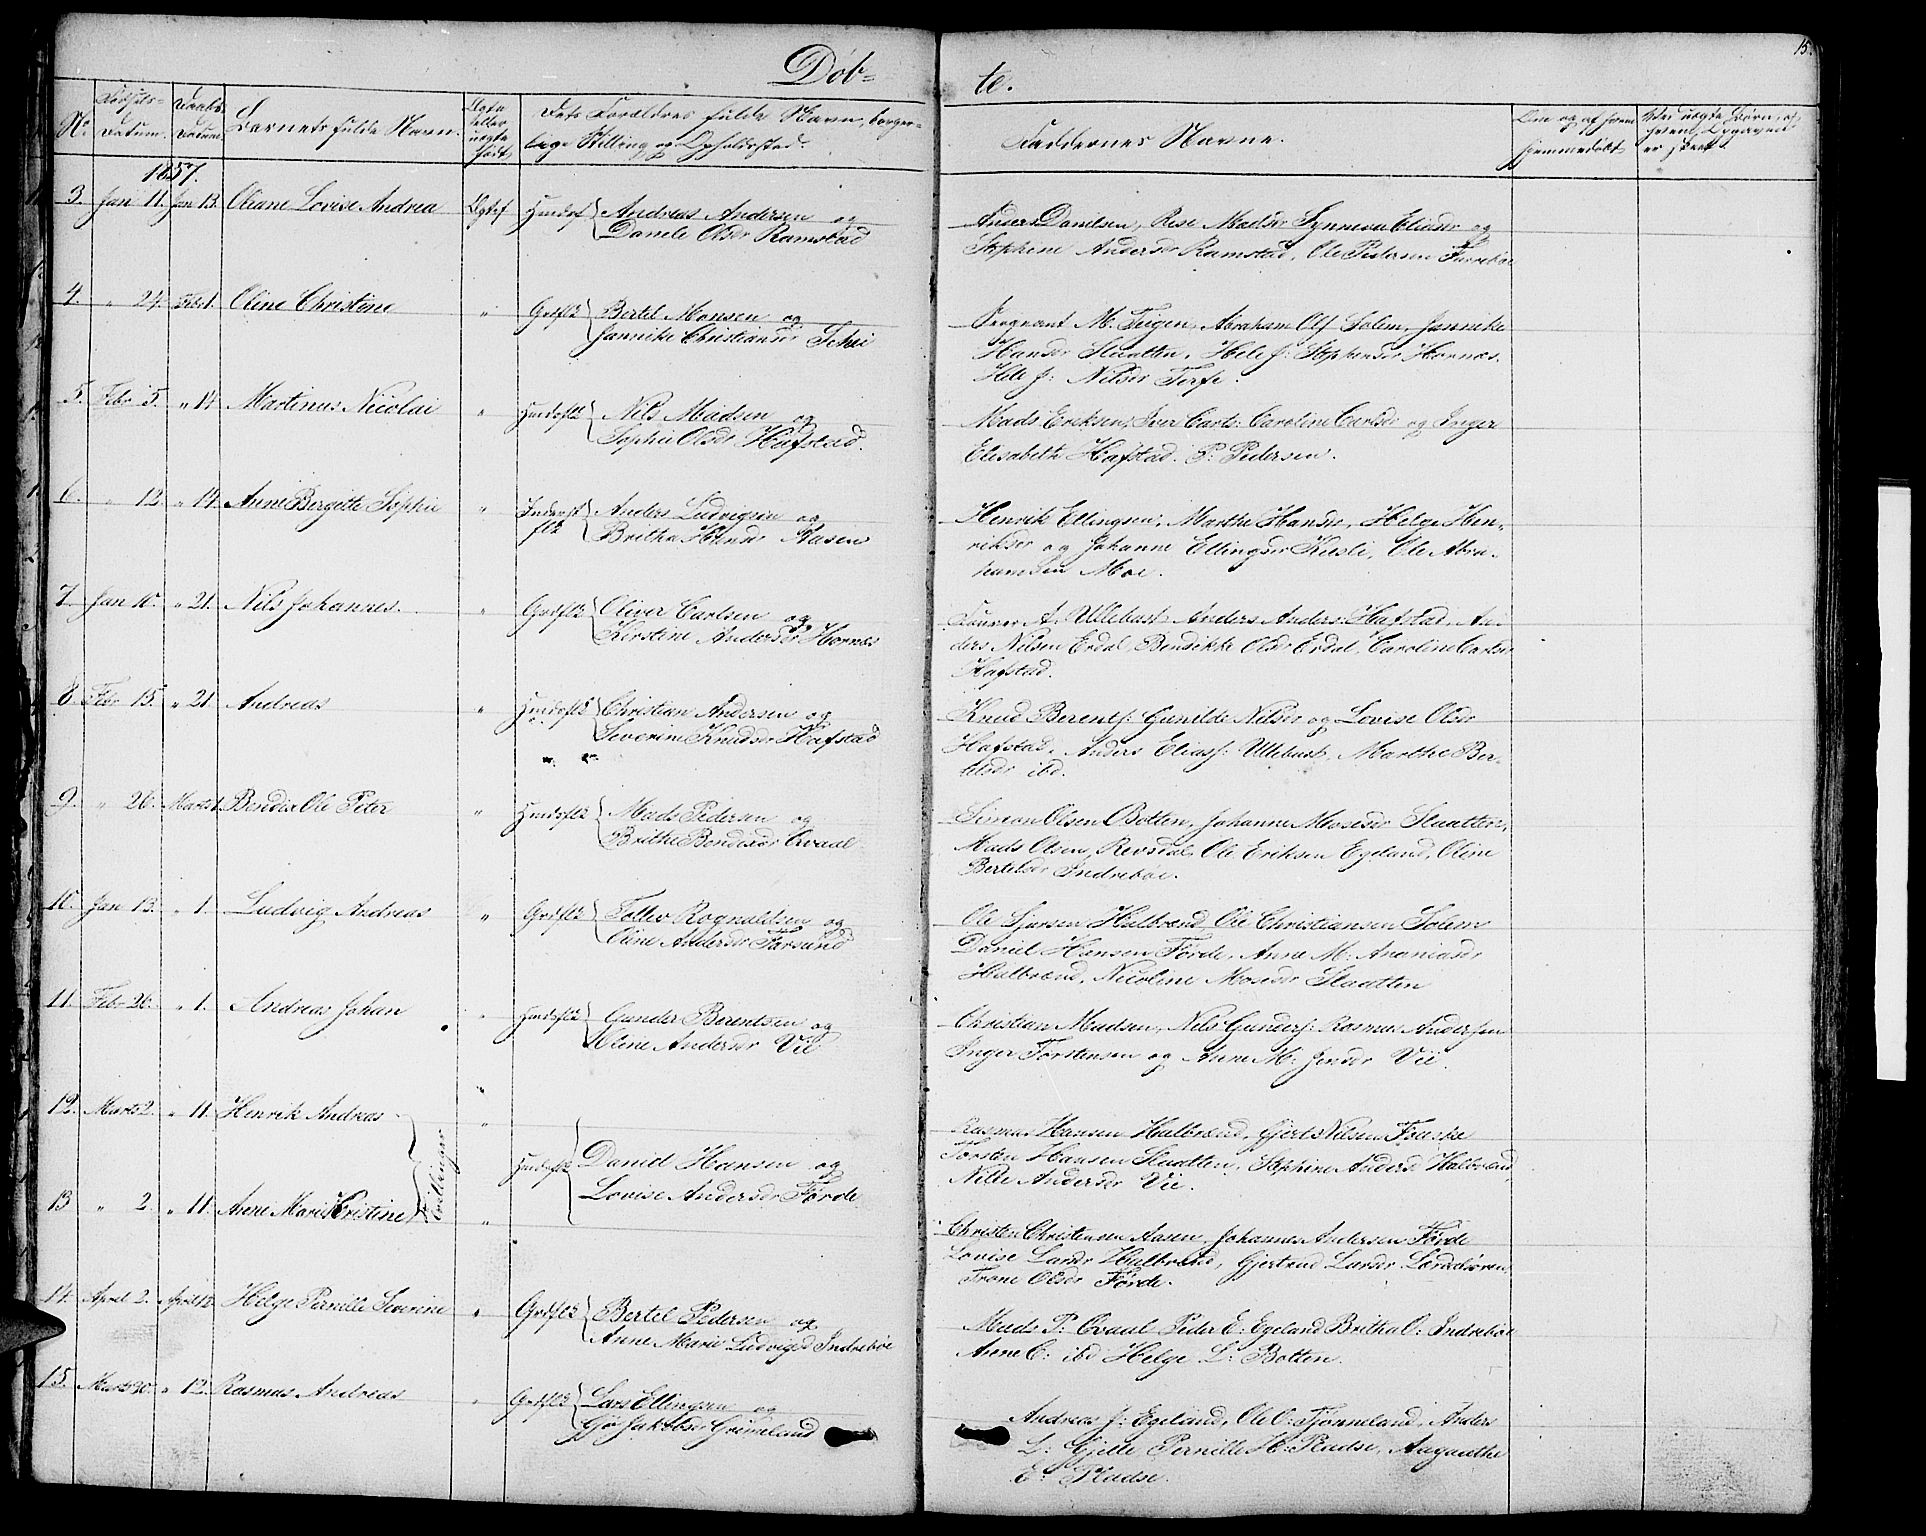 Döb-
te.
15.
No
Fødsels-
Datum.
Daabs
Datum
Barnets fulde Navn.
Ægte
eller
uægte
født
Dets Forældres fulde Navn, borger-
lige Stilling og Opholdssted.
Faddernes Navne.
Om og af hvem
hjemmedøbt
1857.
3. Jan 11. Jan 13. Oliane Lovise Andrea Ægtef Huusf Andreas Andersen og
Danele Olsdr Ramstad
Anders Danilsen, Rise Madsdr Synneva Eliasdr og
Stephine Andersdr Ramstad, Ole Pedersen Farsebøe
4. " 24. Febr 1. Oline Christine " Grdflk Bertel Monsen og
Jannike Christiansdr
Sergeant M. Teigen, Abraham Ols Solem, Jannike
Hansdr Slaatten, Hele J: Stephensdr Hornæs,
Hele J: Nilsdr Torfe.
5. Febr 5. " 14 Martinus Nicolai " Huusflk Nils Madsen og
Sophie Olsdr Hafstad.
Mads Eriksen, Iver Carls: Caroline Carlsdr og Inger
Elisabeth Hafstad. P: Pedersen.
6. " 12. " 14. Anne Bergitte Sophie " Inderst
flk Anders Ludvigsen og
Britha Hansdr Aasen
Henrik Ellingsen, Marthe Hansdr, Helge Hen-
riksdr og Johanne Ellingsdr Kusli, Ole Abra-
hamsen Moe.
7. Jan 10. " 21. Nils Johannes. " Grdflk Oliver Carlsen og
Kirstine Andersdr Hornæs
A. Ullebust Anders Anders: Hafstad, An-
ders Nilsen Erdal, Bendikke Olsdr Erdal, Caroline Carlsdr
Hafstad.
8. Febr 15. " 21. Andreas " Huusflk Christian Andersen og
Severine Knudsdr Hafstad
Knud Berents: Gunilde Nilsdr og Lovise Olsdr
Hafstad, Anders Elias: Ullebust, Marthe Ber-
telsdr ibd.
9. " 26. Marts 1. Bendix Ole Peter " Huusflk Mads Pedersen og
Brithe Bendixdr Qvaal
Simon Olsen Botten, Johanne Mosesdr Slaatten,
Mads Olsen Revsdal, Ole Eriksen Egeland, Oline
Bertelsdr Indrebøe.
10. Jan 13. " 1. Ludvig Andreas " Grdflk Tollev Rognaldsen og
Oline Andersdr Farsund
Ole Sjursen Halbrænd, Ole Christiansen Solem
Daniel Hansen Förde, Anne M: Ananiasdr
Halbrænd, Nicoline Mosesdr Slaatten
11. Febr 26. " 1. Andreas Johan " Huusflk Gunder Berentsen og
Oline Andersdr Vie
Christian Madsen, Nils Gunders: Rasmus Andersen
Inger Torstensen og Anne M: Jensdr Vie.
12. Marts 2. " 11. Henrik Andreas " Tvillinger
Huusflk Daniel Hansen og
Lovise Andersdr Förde
Rasmus Hansen Halbrænd, Gjert Nilsen Fauske
Torsten Hansen Slaatten, Stephine Andersd Halbrænd,
Nille Andersdr Vie.
13 " 2. " 11. Anne Marie Kristine "
Christen Christensen Aasen, Johannes Andersen Förde
Lovise Larsdr Halbrænd, Gjertrud Larsdr Lærdalsøren,
Trone Olsdr Förde.
14. April 2. April 12 Helge Pernille Severine " Grdflk Bertel Pedersen og
Anne Marie Ludvigsd Indrebøe
Mads P: Qvaal Peder E: Egeland Britha O: Indrebøe
Anne C: ibd Helge L: Botten.
15. Marts 30. " 12. Rasmus Andreas " Grdflk Lars Ellingsen og
Gjø Jakobsd Grimeland
Andreas J: Egeland, Ole O: Tjønneland, Anders
L: Gjelle Pernille H: Pladse, Aagaathe
E: Pladse.